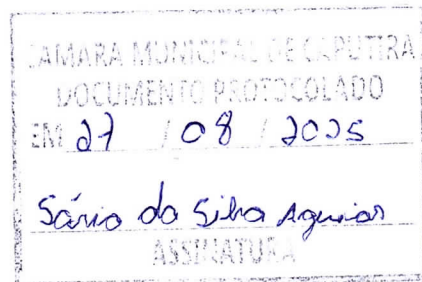 CÂMARA MUNICIPAL DE CAPUTIRA
DOCUMENTO PROTOCOLADO
EM 27 / 08 / 2025
da Silva Aguiar
ASSINATURA